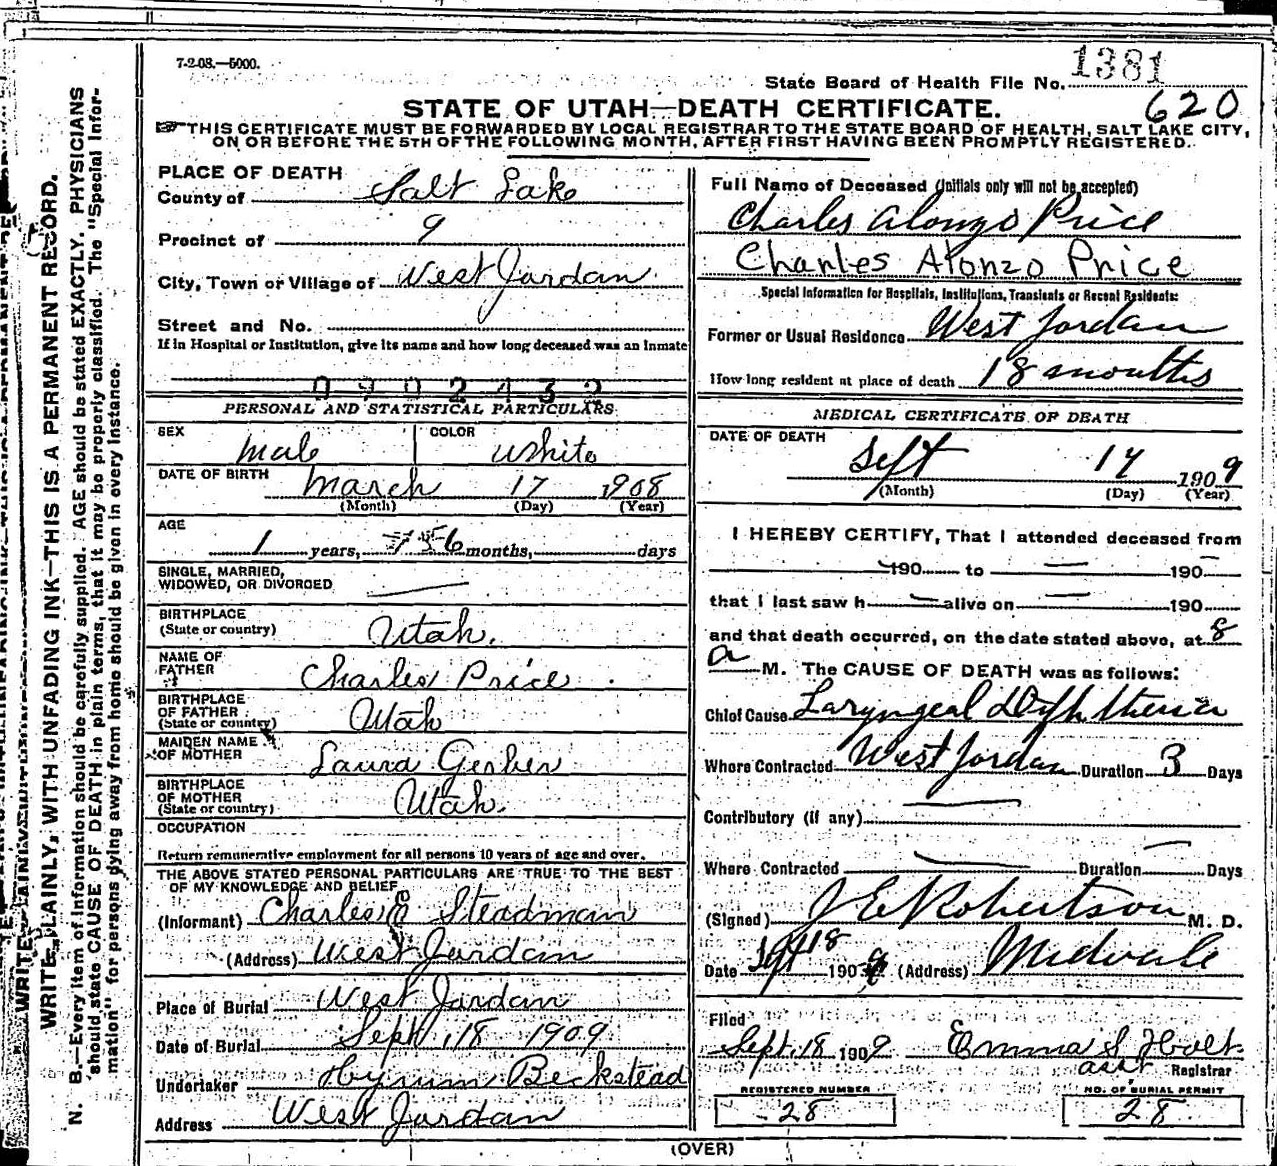 7-2-08.—5000.
State Board of Health File No. 1381
620
STATE OF UTAH—DEATH CERTIFICATE.
THIS CERTIFICATE MUST BE FORWARDED BY LOCAL REGISTRAR TO THE STATE BOARD OF HEALTH, SALT LAKE CITY,
ON OR BEFORE THE 5TH OF THE FOLLOWING MONTH, AFTER FIRST HAVING BEEN PROMPTLY REGISTERED.
WRITE PLAINLY, WITH UNFADING INK—THIS IS A PERMANENT RECORD.
N. B.—Every item of information should be carefully supplied. AGE should be stated EXACTLY. PHYSICIANS
should state CAUSE OF DEATH in plain terms, that it may be properly classified. The "Special Infor-
mation" for persons dying away from home should be given in every instance.
PLACE OF DEATH
County of Salt Lake
Precinct of 9
City, Town or Village of West Jordan
Street and No.
If in Hospital or Institution, give its name and how long deceased was an inmate
PERSONAL AND STATISTICAL PARTICULARS
SEX Male COLOR White
DATE OF BIRTH March 17 1908
(Month) (Day) (Year)
AGE
1 years, 6 months, days
SINGLE, MARRIED,
WIDOWED, OR DIVORCED
BIRTHPLACE
(State or country) Utah.
NAME OF
FATHER Charles Price
BIRTHPLACE
OF FATHER
(State or country) Utah
MAIDEN NAME
OF MOTHER Laura Gerber
BIRTHPLACE
OF MOTHER
(State or country) Utah.
OCCUPATION
Return remunerative employment for all persons 10 years of age and over.
THE ABOVE STATED PERSONAL PARTICULARS ARE TRUE TO THE BEST
OF MY KNOWLEDGE AND BELIEF
(Informant) Charles E Steadman
(Address) West Jordan
Place of Burial West Jordan
Date of Burial Sept. 18 1909
Undertaker Hyrum Beckstead
Address West Jordan
Full Name of Deceased (Initials only will not be accepted)
Charles Alonzo Price
Charles Alonzo Price
Special Information for Hospitals, Institutions, Transients or Recent Residents:
Former or Usual Residence West Jordan
How long resident at place of death 18 months
MEDICAL CERTIFICATE OF DEATH
DATE OF DEATH
Sept 17 1909
(Month) (Day) (Year)
I HEREBY CERTIFY, That I attended deceased from
190 to 190
that I last saw h alive on 190
and that death occurred, on the date stated above, at 8
a M. The CAUSE OF DEATH was as follows:
Chief Cause Laryngeal Diphtheria
Where Contracted West Jordan Duration 3 Days
Contributory (if any)
Where Contracted Duration Days
(Signed) J E Robertson M. D.
Date Sept 18 1909 (Address) Midvale
Filed
Sept. 18 1909 Emma S. Holt
asst. Registrar
REGISTERED NUMBER NO. OF BURIAL PERMIT
28 28
(OVER)